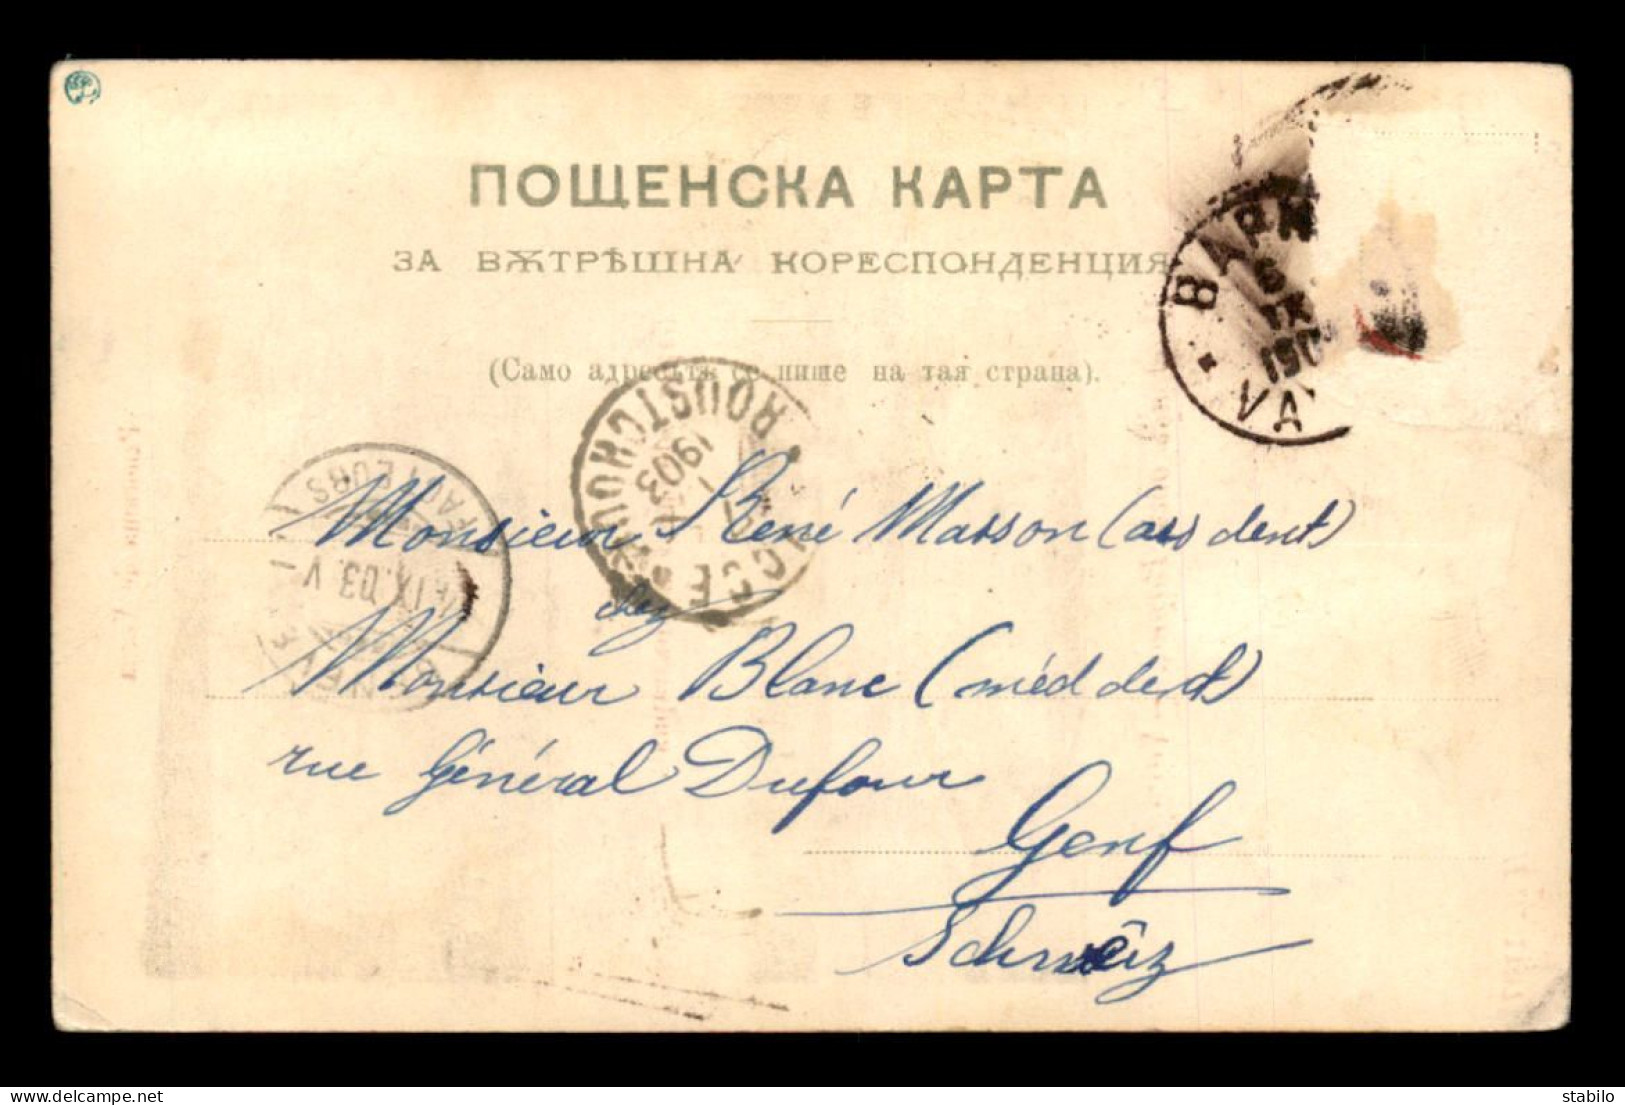 ПОЩЕНСКА КАРТА
ЗА ВѪТРѢШНА КОРЕСПОНДЕНЦИЯ
(Само адресътъ се пише на тая страна).
ВАРН
IX
ROUSTCHOUK
1903
FACTEURS
IX.03.V
Monsieur René Masson (ass dent)
chez
Monsieur Blanc (méd dent)
rue Général Dufour
Genf
Schweiz
stabilo77